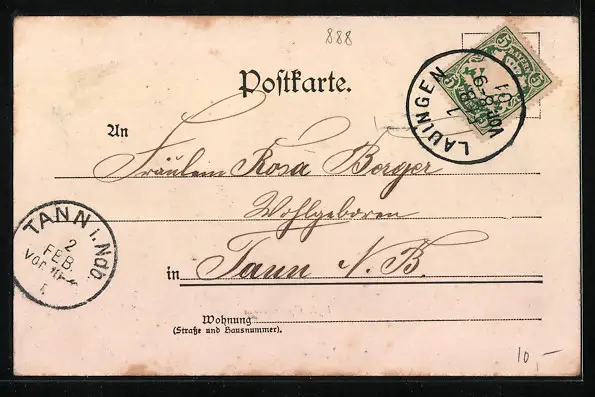 888
Postkarte.
An
Fräulein Rosa Berger
Wohlgeboren
in Tann N. B.
Wohnung
(Straße und Hausnummer).
LAUINGEN
TANN i. Ndb.
2
FEB.
VOR.
10,-